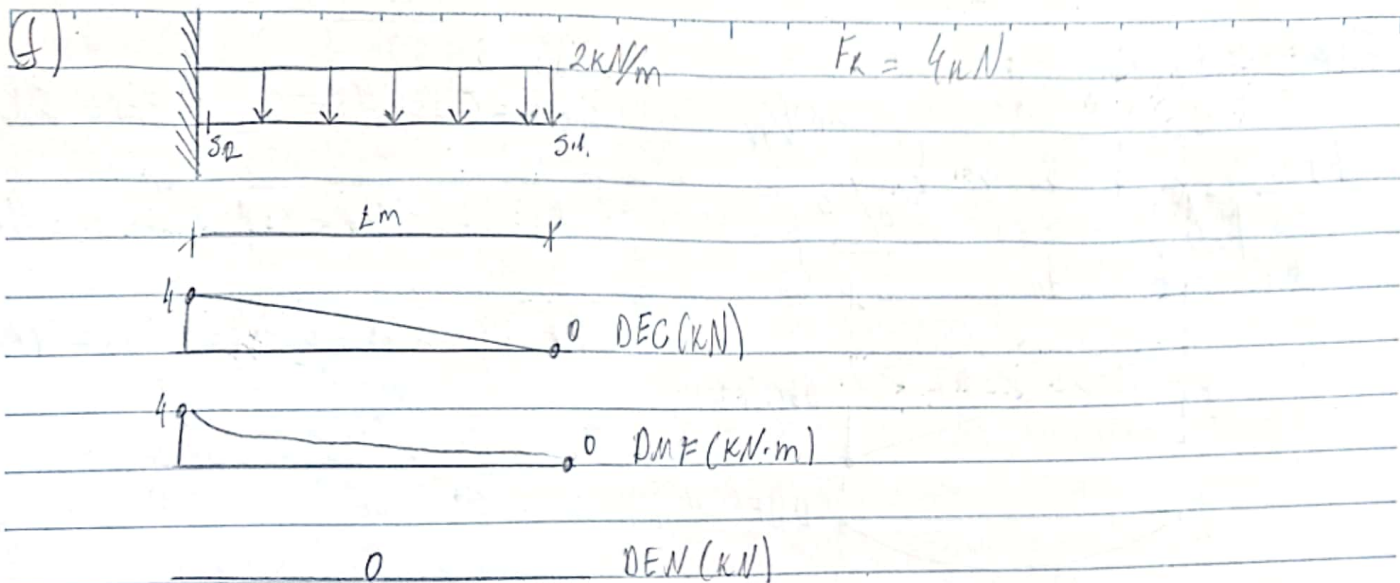 (f)
2kN/m
F_R = 4kN
S2 S.1.
2m
4 0 DEC (KN)
4 0 DMF (KN.m)
0 DEN (KN)